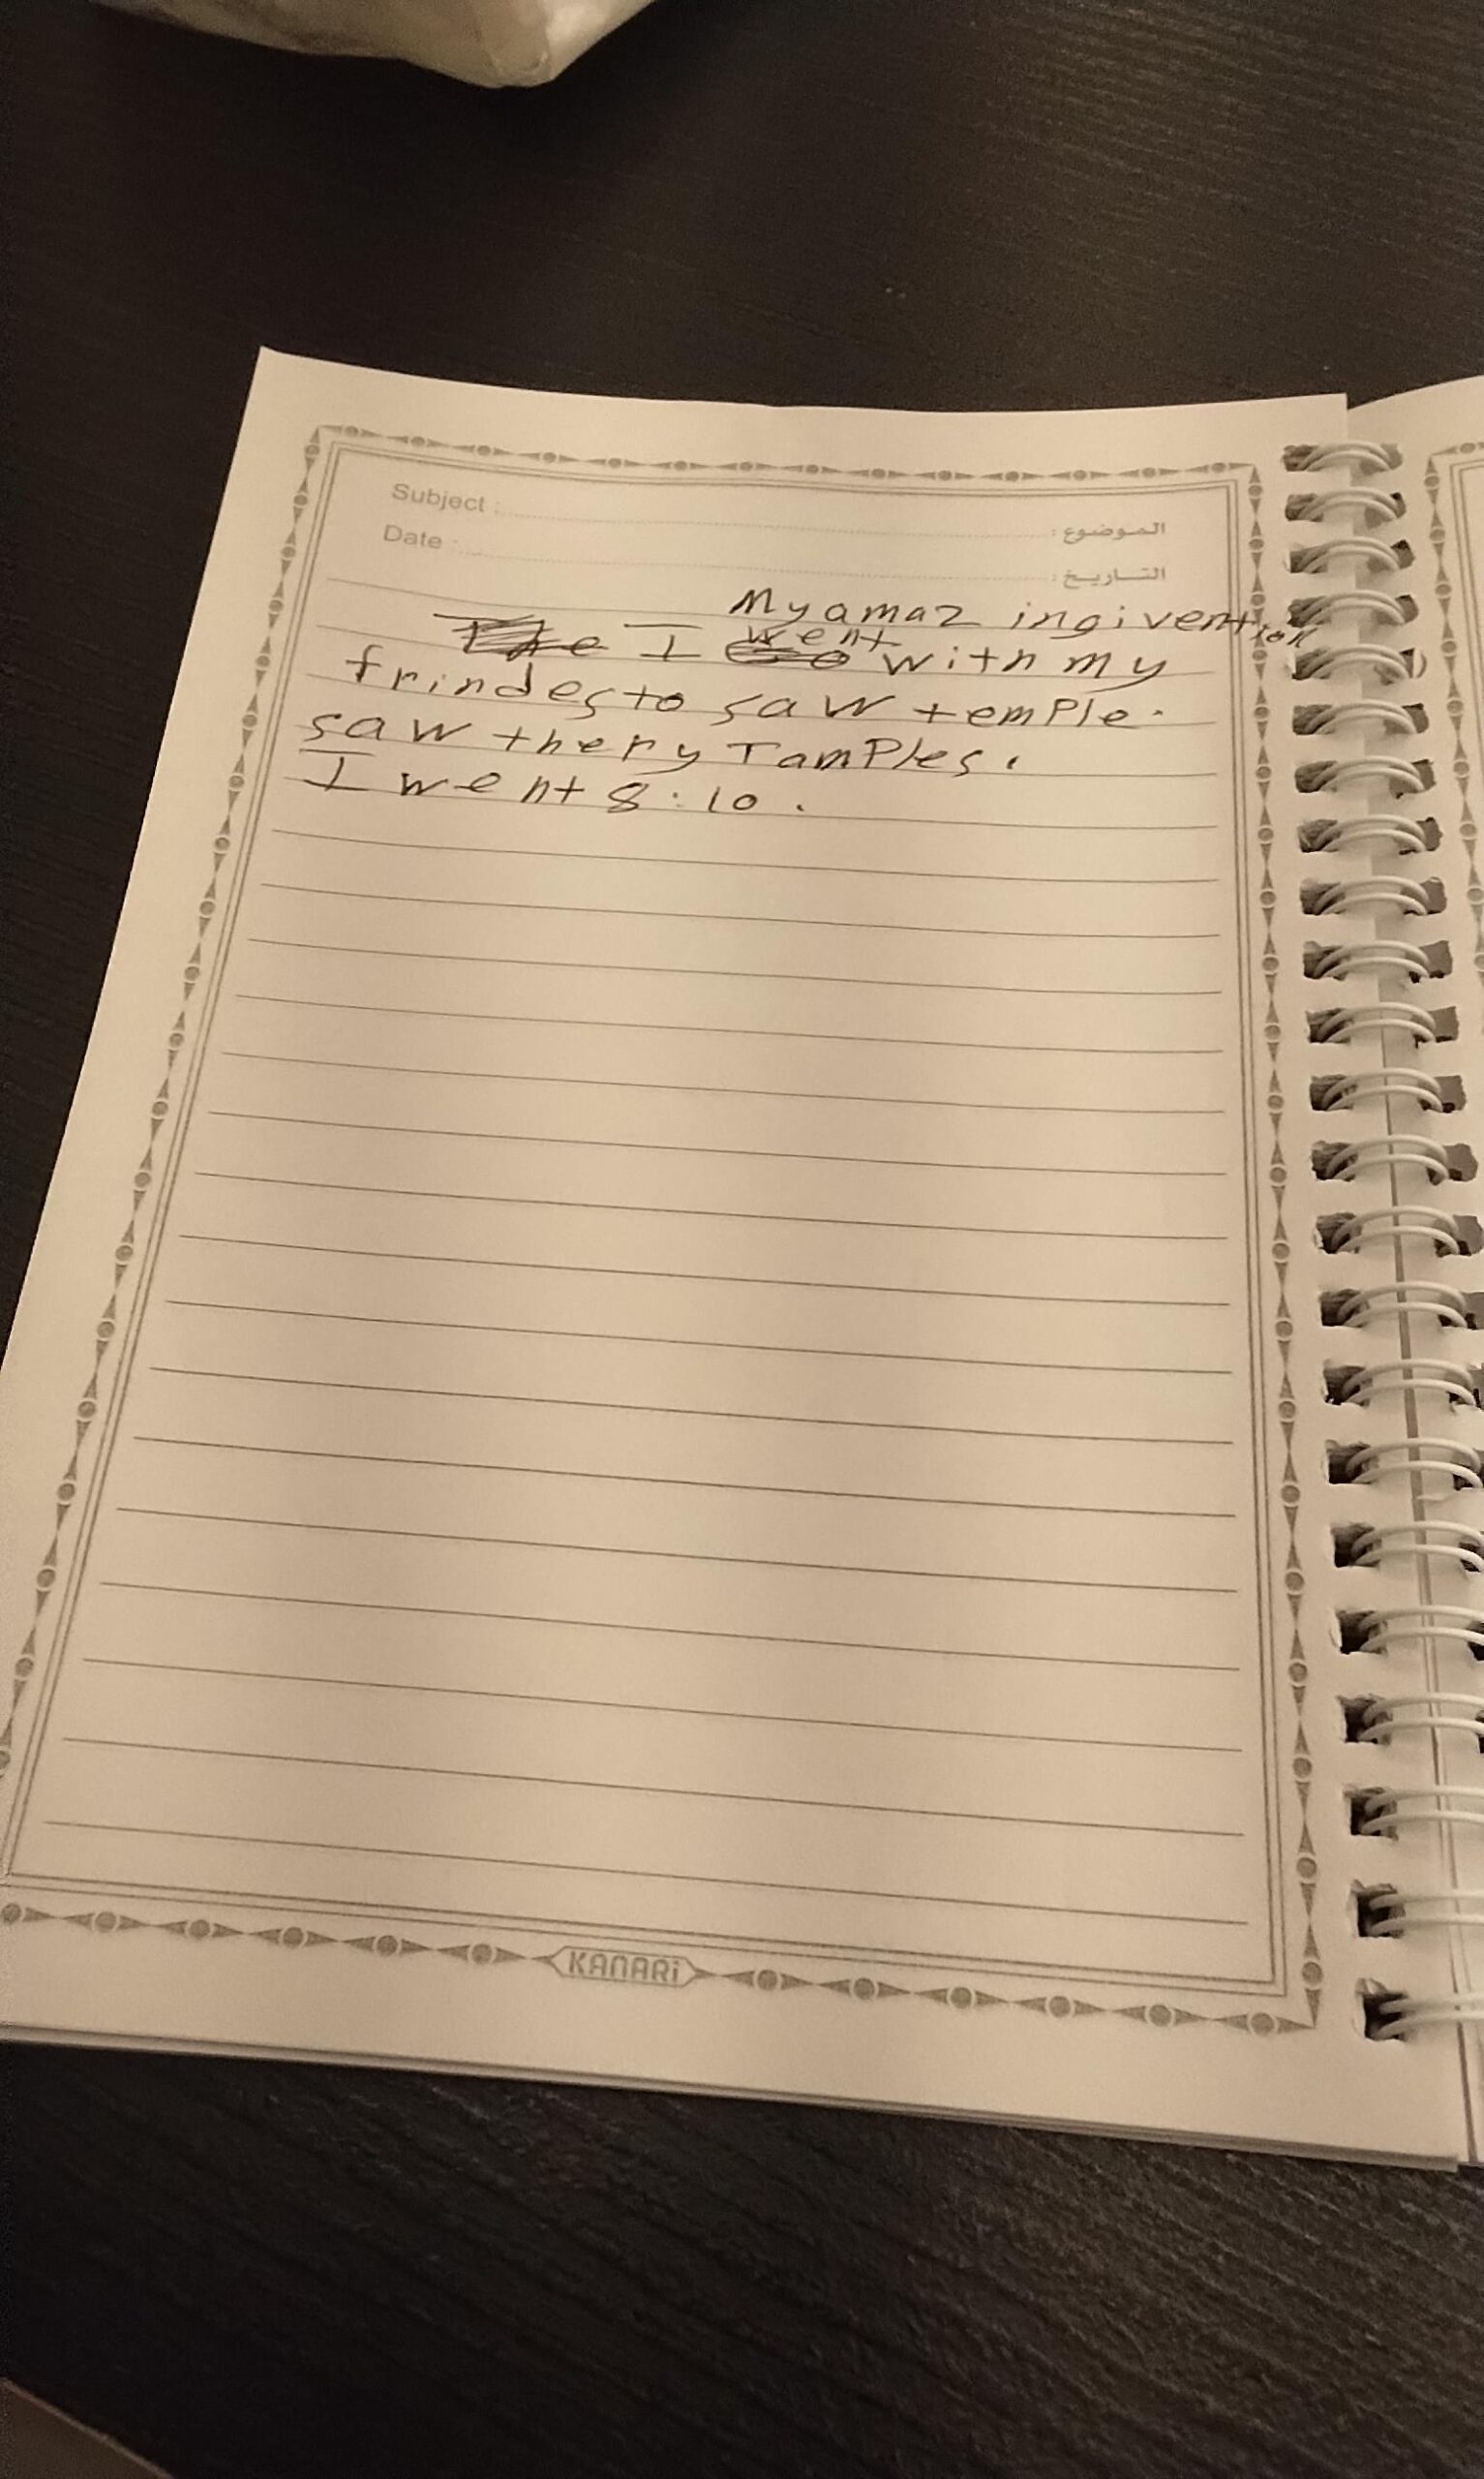 Subject : الموضوع :
Date : التاريخ :
My amaz ingivention
I went with my
frindes to saw temple.
saw thery Tamples.
I went 8:10.
KANARi